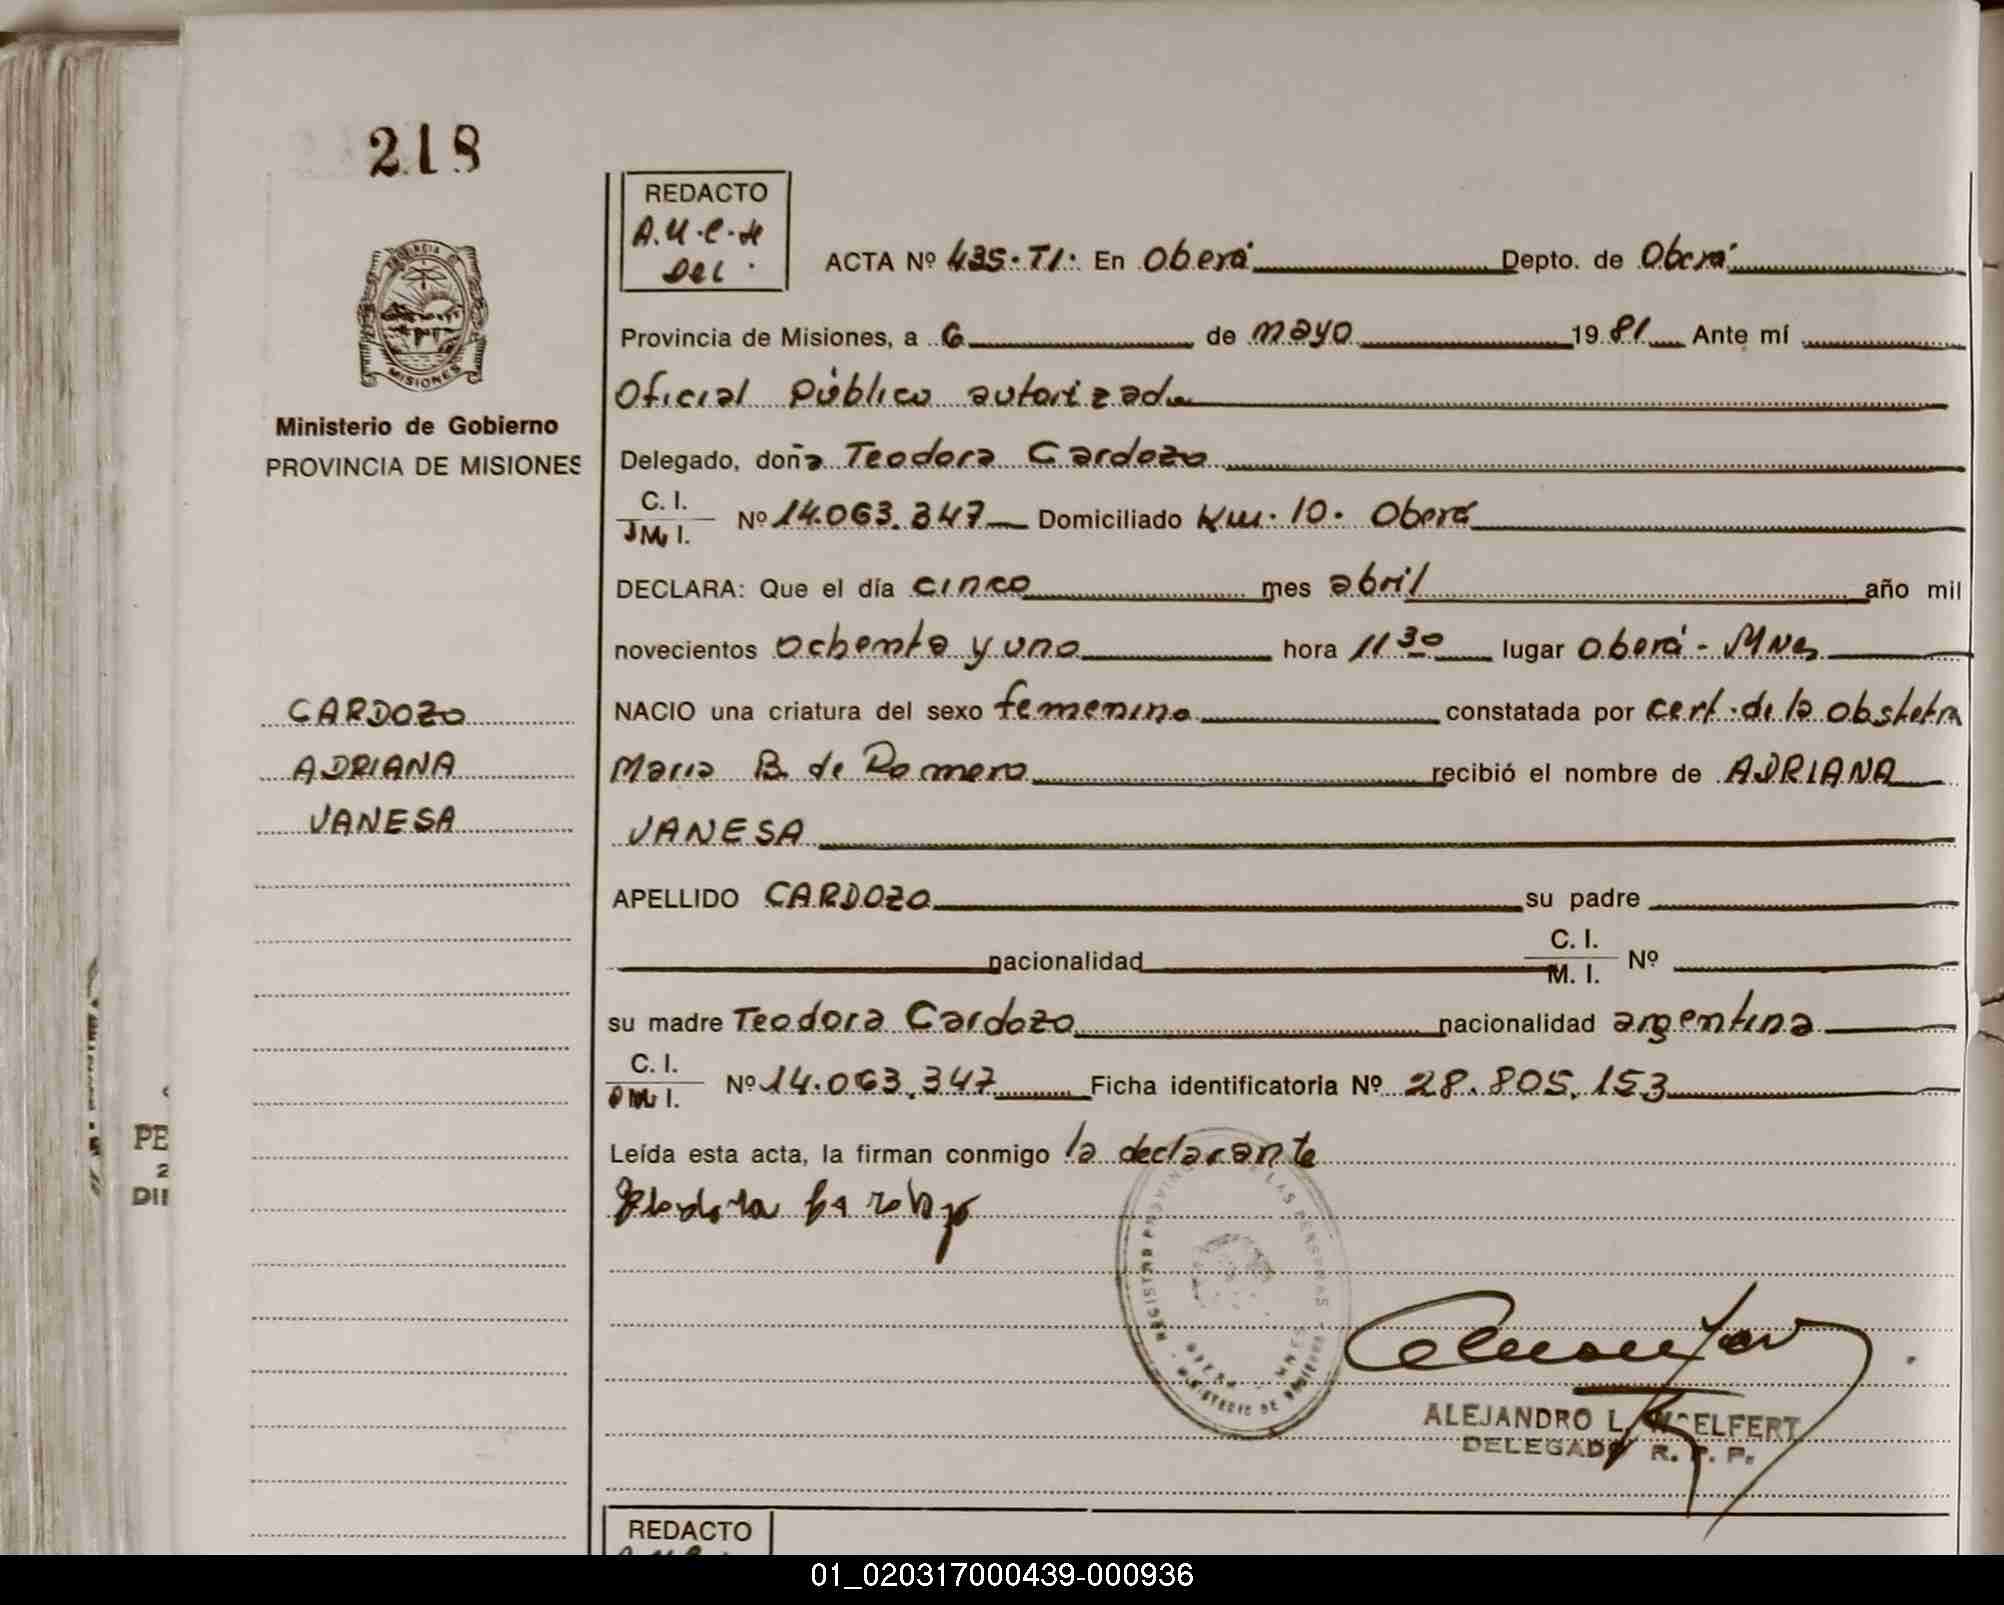 218
REDACTO
A.M.C.H
DEL.
ACTA Nº 435.TI. En Oberá Depto. de Oberá
Provincia de Misiones, a 6 de mayo 1981 Ante mí
Oficial Público autorizado
PROVINCIA
MISIONES
Ministerio de Gobierno
PROVINCIA DE MISIONES
Delegado, doña Teodora Cardozo
C. I.
M. I. Nº 14.063.347 Domiciliado Km. 10. Oberá
DECLARA: Que el día cinco mes abril año mil
novecientos ochenta y uno hora 11 30 lugar Oberá - Mnes
CARDOZO
ADRIANA
VANESA
NACIO una criatura del sexo femenino constatada por cert. de la obstetra
Maria B. de Romero recibió el nombre de ADRIANA
VANESA
APELLIDO CARDOZO su padre
nacionalidad C. I. M. I. Nº
su madre Teodora Cardozo nacionalidad argentina
C. I.
M. I. Nº 14.063.347 Ficha identificatoria Nº 28.805.153
Leída esta acta, la firman conmigo la declarante
Teodora Cardozo
REGISTRO PROVINCIAL DE LAS PERSONAS
MINISTERIO DE GOBIERNO
OBERA - MNES
ALEJANDRO L. ELFERT
DELEGADO R. P. P.
PE
2
DII
REDACTO
01_020317000439-000936